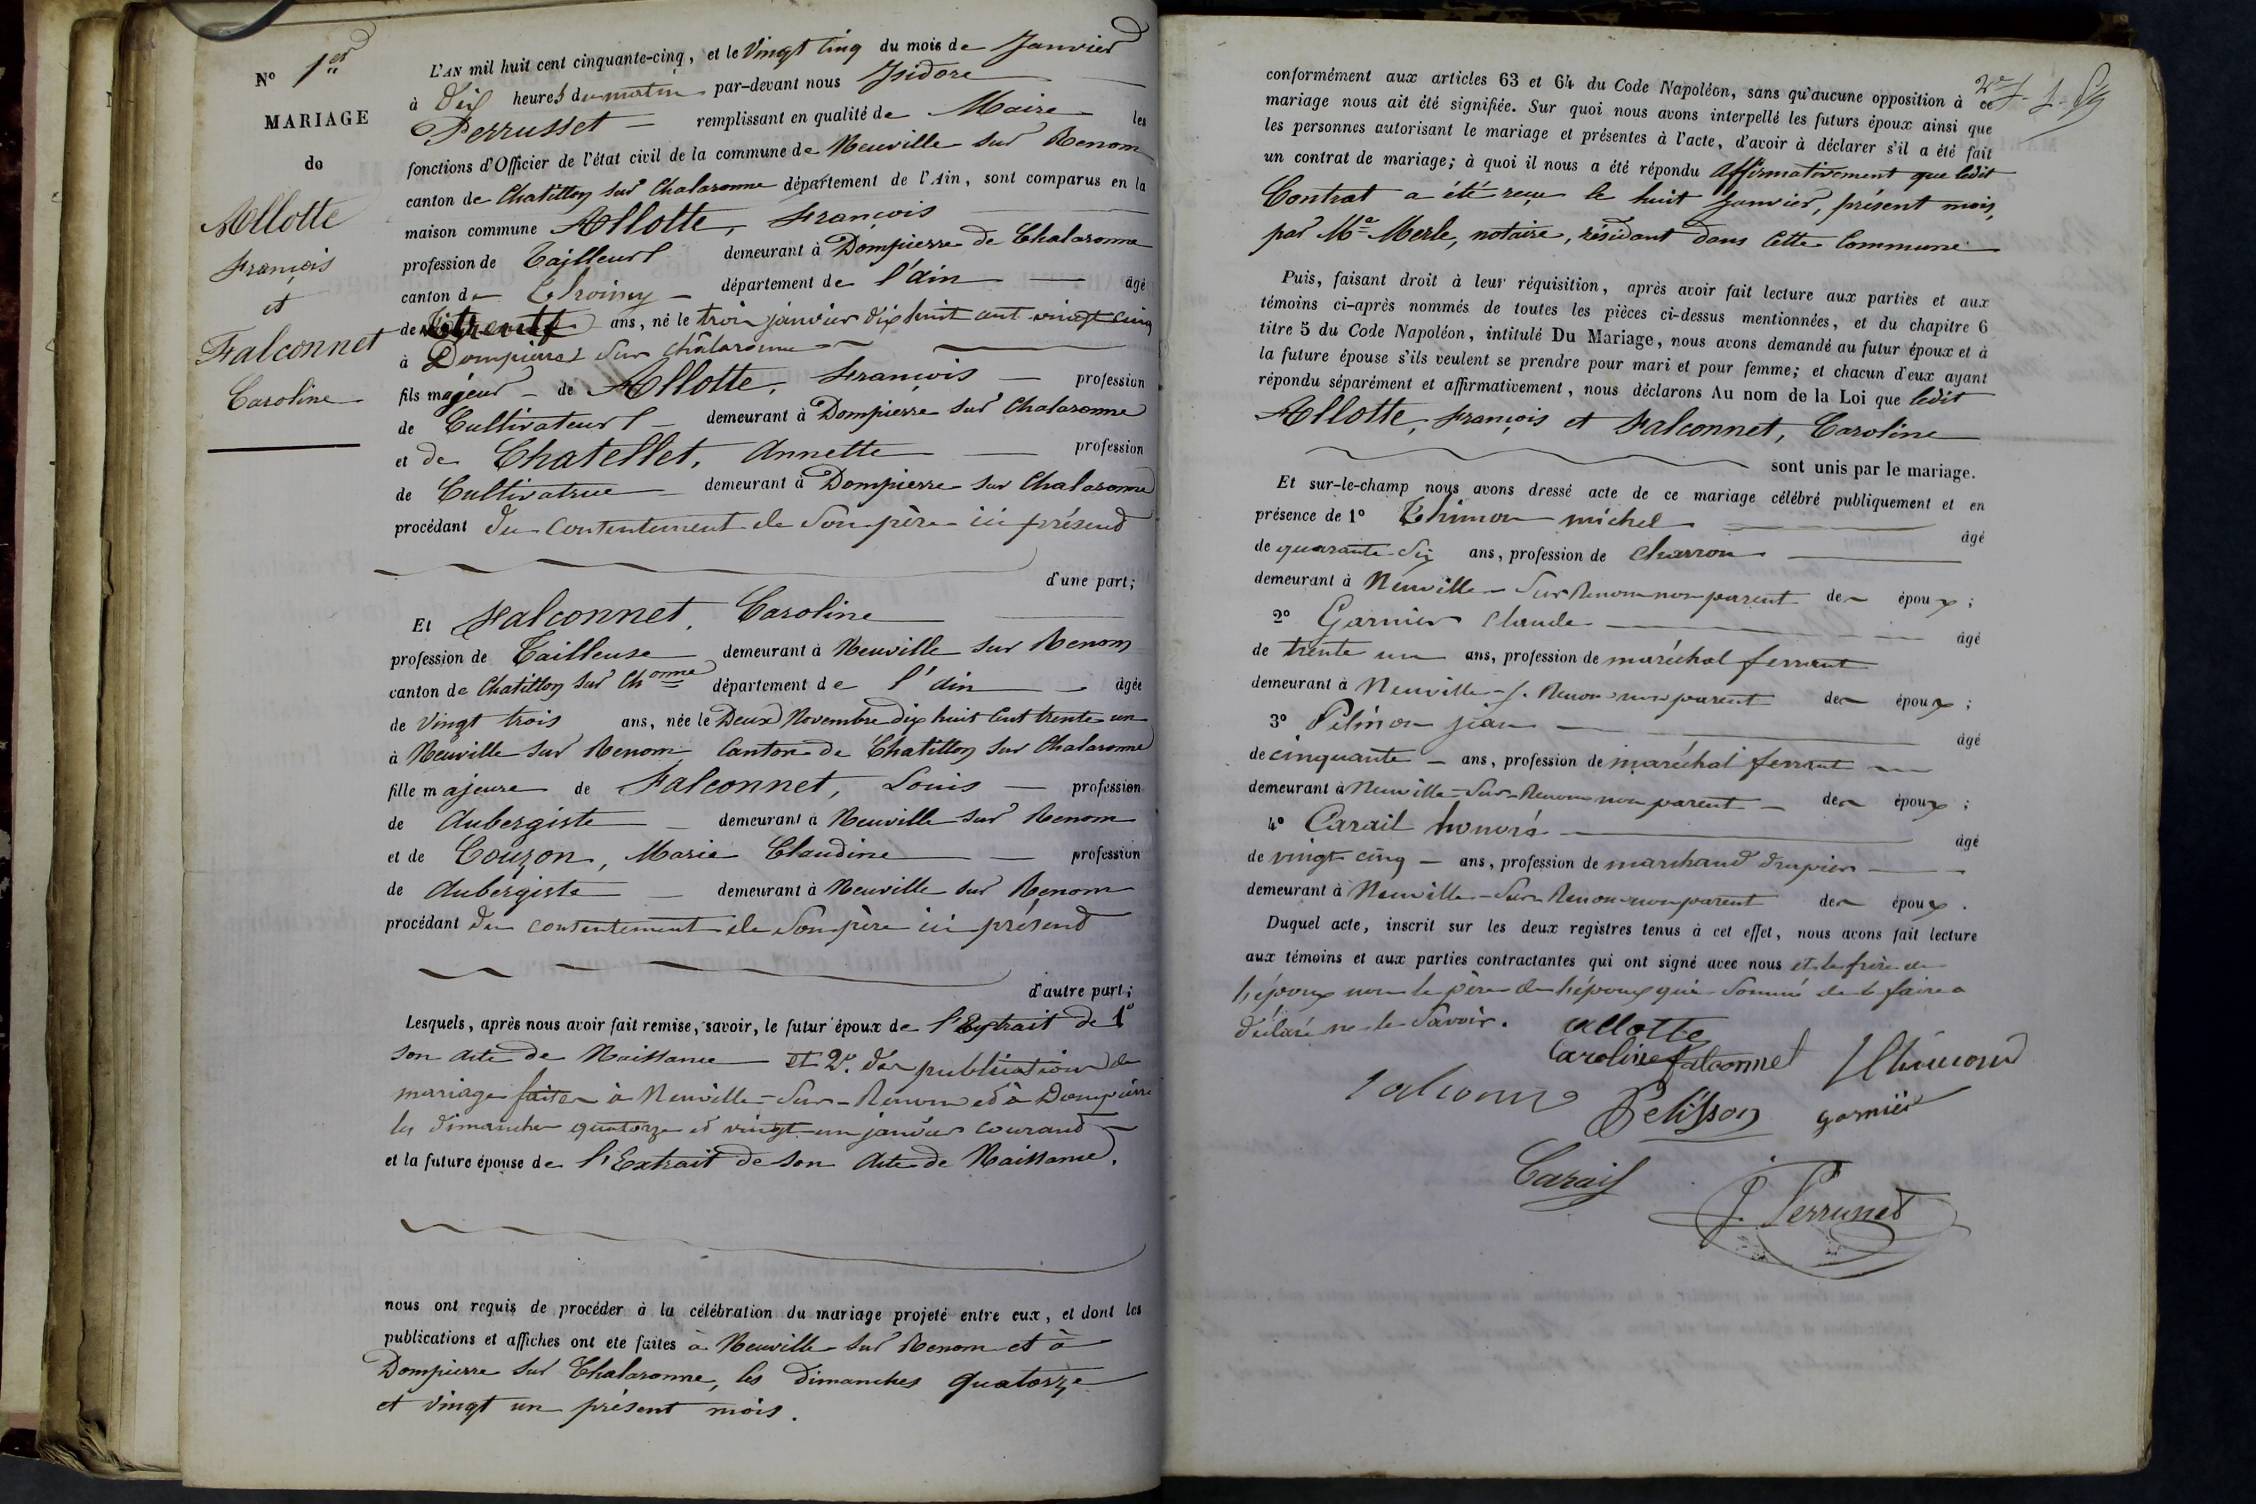 N° 1er
MARIAGE
de
Allotte
François
et
Falconnet
Caroline
L'AN mil huit cent cinquante-cinq, et le Vingt Cinq du mois de Janvier
à dix heures du matin par-devant nous Isidore
Perrusset remplissant en qualité de Maire les
fonctions d'Officier de l'état civil de la commune de Neuville sur Renom
canton de Chatillon sur Chalaronne département de l'Ain, sont comparus en la
maison commune Allotte, François
profession de Tailleur demeurant à Dompierre de Chalaronne
canton de Thoissey département de l'ain âgé
de trente ans, né le trois janvier dix huit cent vingt cinq
à Dompierre sur Chalaronne
fils majeur de Allotte, François profession
de Cultivateur demeurant à Dompierre sur Chalaronne
et de Chatellet, Annette profession
de Cultivatrice demeurant à Dompierre sur Chalaronne
procédant du consentement de Son père ici présend
d'une part;
Et Falconnet, Caroline
profession de Tailleuse demeurant à Neuville sur Renom
canton de Chatillon sur Chonne département de l'ain âgée
de Vingt trois ans, née le Deux Novembre dix huit Cent trente un
à Neuville sur Renom Canton de Chatillon sur Chalaronne
fille majeure de Falconnet, Louis profession
de Aubergiste demeurant à Neuville sur Renom
et de Couzon, Marie Claudine profession
de Aubergiste demeurant à Neuville sur Renom
procédant du consentement de Son père ici présend
d'autre part;
Lesquels, après nous avoir fait remise, savoir, le futur époux de l'Extrait de 1°
son Acte de Naissance et 2° des publications de
mariage faites à Neuville-Sur-Renom et à Dompierre
les dimanches quatorze et vingt-un janvier courand
et la future épouse de l'Extrait de son Acte de Naissance.
nous ont requis de procéder à la célébration du mariage projeté entre eux, et dont les
publications et affiches ont ete faites à Neuville sur Renom et à
Dompierre sur Chalaronne, les dimanches quatorze
et vingt un présent mois.
conformément aux articles 63 et 64 du Code Napoléon, sans qu'aucune opposition à ce
mariage nous ait été signifiée. Sur quoi nous avons interpellé les futurs époux ainsi que
les personnes autorisant le mariage et présentes à l'acte, d'avoir à déclarer s'il a été fait
un contrat de mariage; à quoi il nous a été répondu affirmativement que ledit
Contrat a été reçu le huit Janvier, présent mois,
par Me Merle, notaire, résidant dans Cette Commune
Puis, faisant droit à leur réquisition, après avoir fait lecture aux parties et aux
témoins ci-après nommés de toutes les pièces ci-dessus mentionnées, et du chapitre 6
titre 5 du Code Napoléon, intitulé Du Mariage, nous avons demandé au futur époux et à
la future épouse s'ils veulent se prendre pour mari et pour femme; et chacun d'eux ayant
répondu séparément et affirmativement, nous déclarons Au nom de la Loi que ledit
Allotte, François et Falconnet, Caroline
sont unis par le mariage.
Et sur-le-champ nous avons dressé acte de ce mariage célébré publiquement et en
présence de 1° Thimon michel âgé
de quarante-six ans, profession de charron
demeurant à Neuville-Sur Renom non parent des époux;
2° Garnier Claude âgé
de trente un ans, profession de maréchal ferrant
demeurant à Neuville-s. Renom non parent des époux;
3° jean âgé
de cinquante ans, profession de maréchal ferrant
demeurant à Neuville-Sur-Renom non parent des époux;
4° Carail honoré âgé
de vingt cinq ans, profession de marchand drapier
demeurant à Neuville-Sur-Renom non parent des époux.
Duquel acte, inscrit sur les deux registres tenus à cet effet, nous avons fait lecture
aux témoins et aux parties contractantes qui ont signé avec nous et le frère de
l'époux non le père de l'époux qui Sommé de le faire a
déclaré ne le Savoir. Allotte
Caroline falconnet
falconnet Pelisson garnier
Carail
J. Perrusset